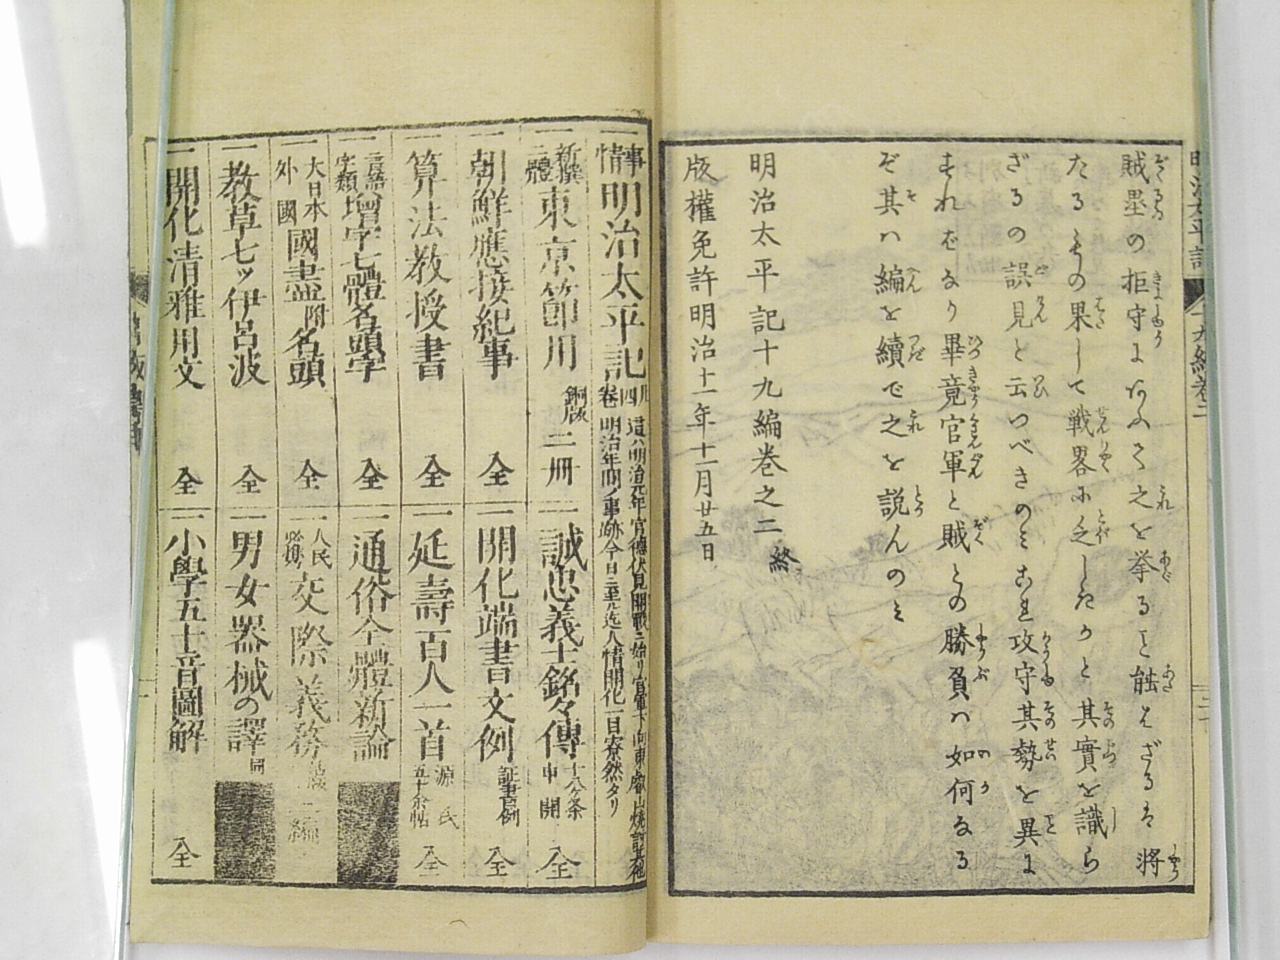 賊墨の拒守によふて之を挙ると能はざるは将
たるものの果して戦畧に乏しきかと其實を識ら
ざるの誤見と云つべきのミ其攻守其勢を異に
すればなり畢竟官軍と賊との勝負ハ如何なる
ぞ其ハ編を續で之を説んのミ
明治太平記十九編巻之二終
版權免許明治十一年十二月廿五日
事情明治太平記
這ハ明治元年官德伏見開戰ニ始リ官軍下向東叡山燒討其他
明治年間ノ事跡今日ニ至ル迄人情開化一目寮然タリ
新撰二體東京節用 銅版 二冊
一誠忠義士銘々傳 全
一朝鮮應接紀事 全
一開化端書文例 証書百例 全
一算法教授書 全
一延壽百人一首 源氏五十余帖 全
言語字類増字七體名頭字 全
一通俗全體新論
大日本外國國盡附名頭 全
一人民必携交際義務 二編
一教草七ッ伊呂波 全
一男女器械の譯 同
一開化清雅用文 全
一小學五十音圖解 全